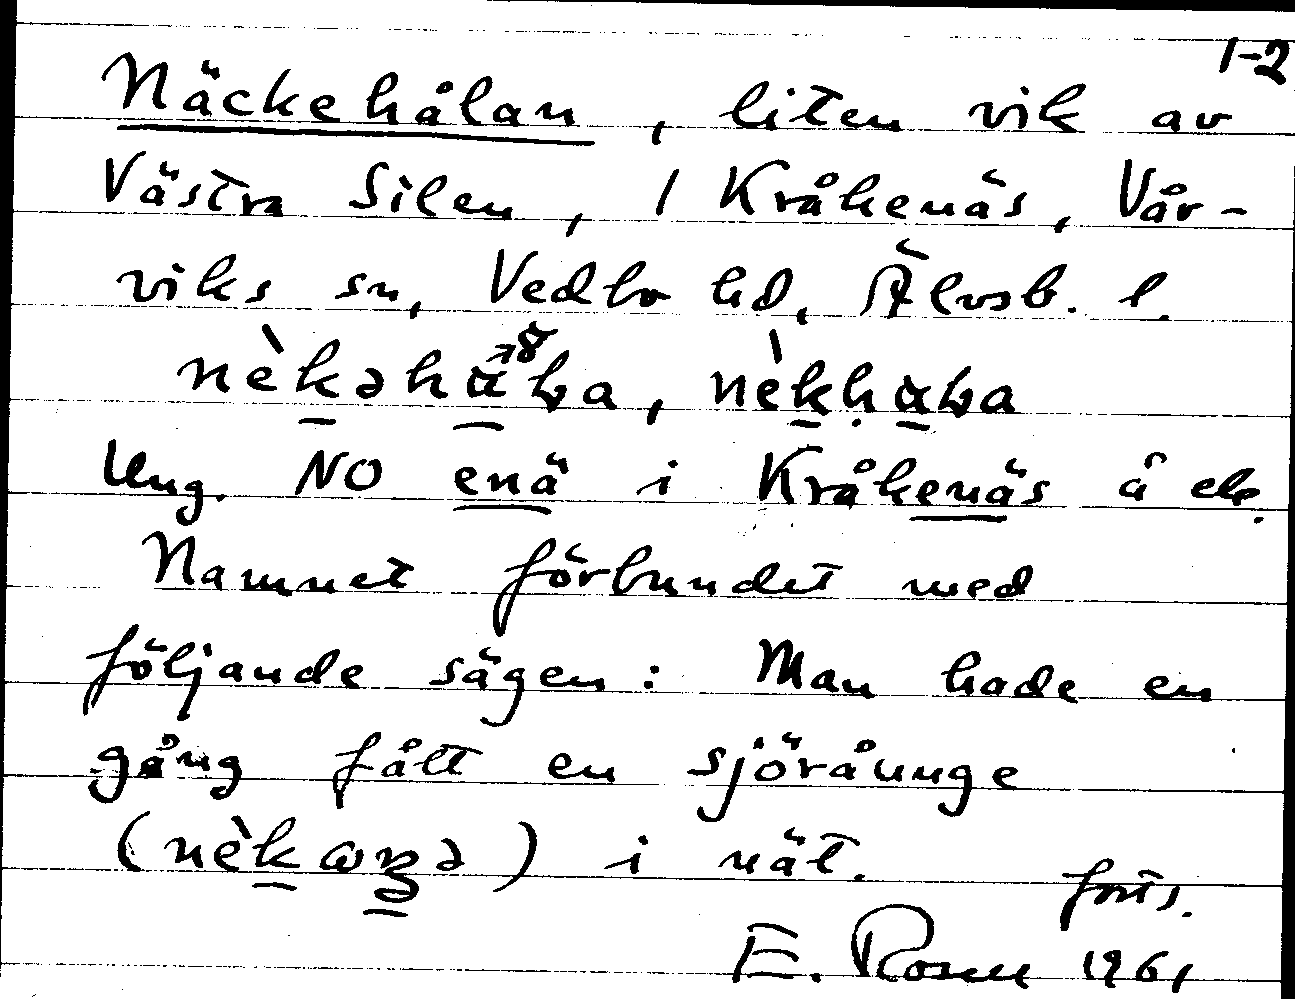 1-2
Näckehålan, liten vik av
Västra Silen, / Kråkenäs, Vår-
viks sn, Vedbo hd, Älvsb. l.
Ung. NO enä i Kråkenäs å ek.
Namnet förbundet med
följande sägen: Man hade en
gång fått en sjöråunge
i nät.
forts.
E. Rosell 1961